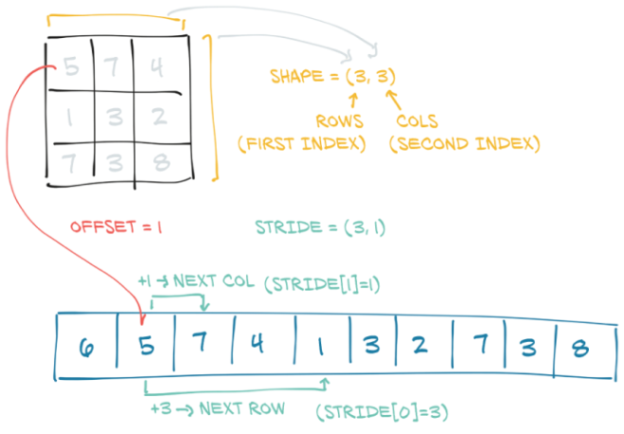 5 7 4
1 3 2
7 3 8
SHAPE = (3, 3)
ROWS COLS
(FIRST INDEX) (SECOND INDEX)
OFFSET = 1
STRIDE = (3, 1)
+1 → NEXT COL (STRIDE[1]=1)
6 5 7 4 1 3 2 7 3 8
+3 → NEXT ROW (STRIDE[0]=3)